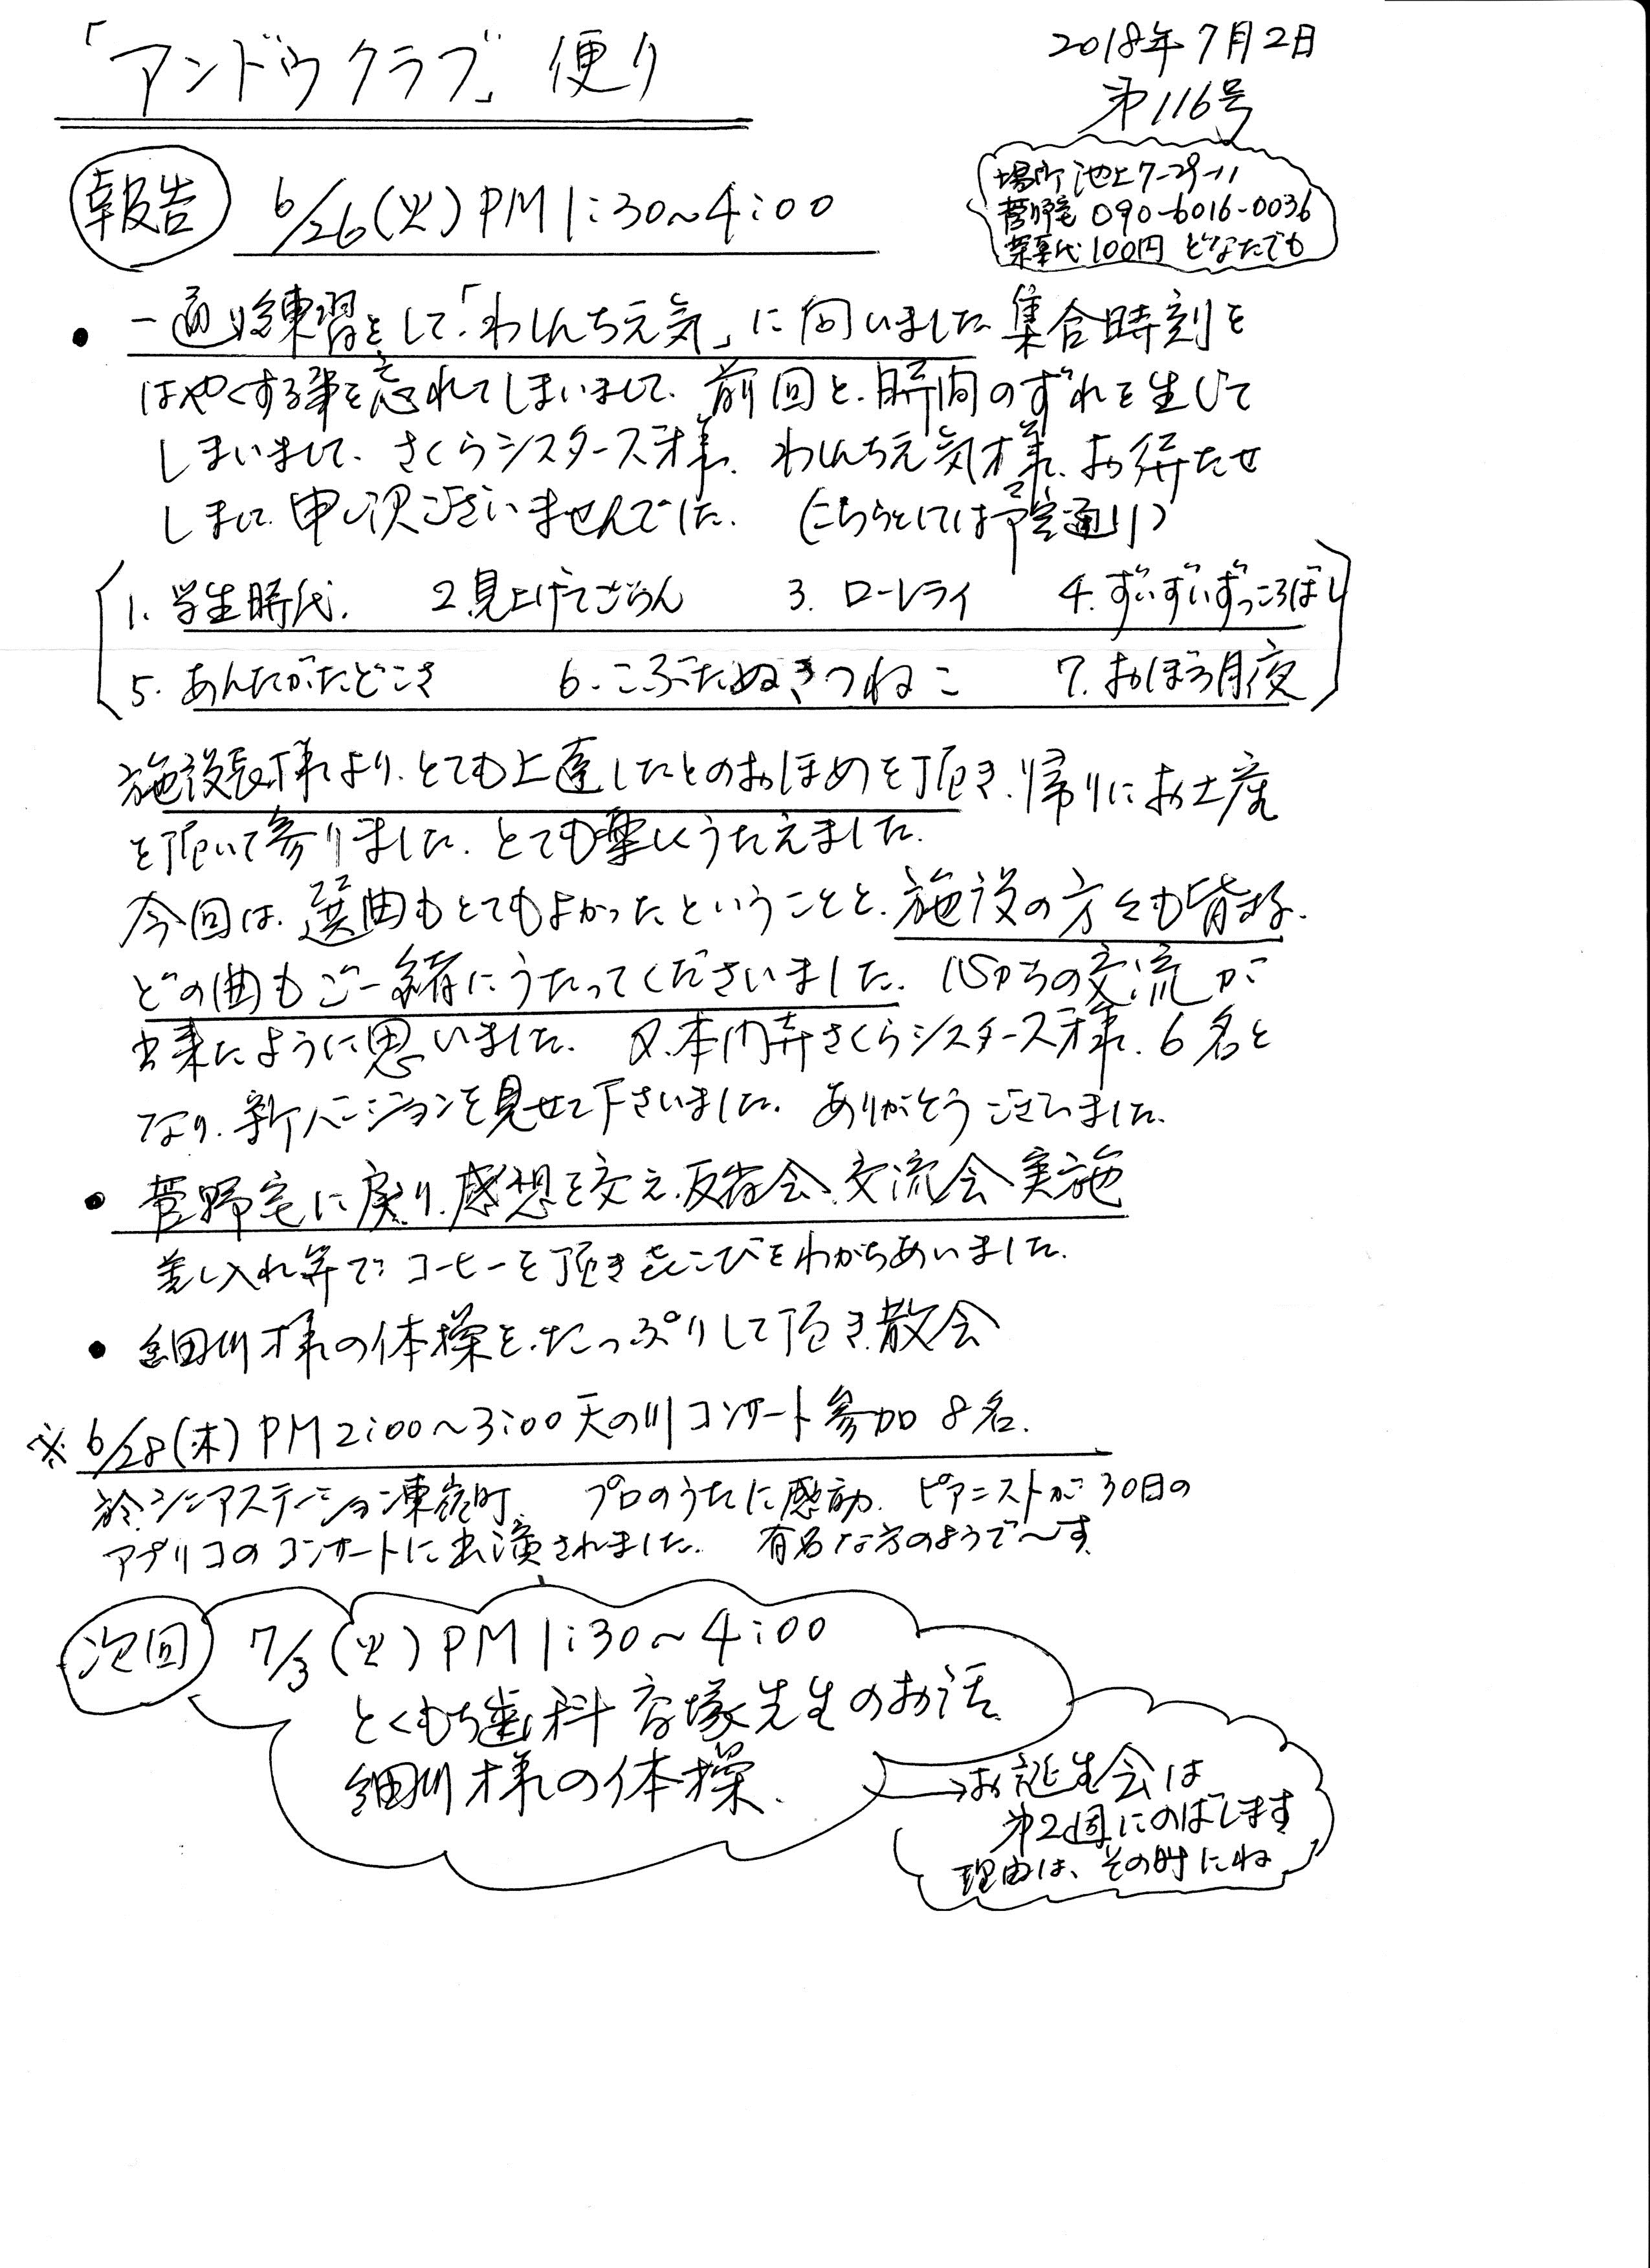 「アンドウクラブ」便り
2018年7月2日
第116号
場所 池上7-29-11
菅野宅 090-6016-0036
茶菓代100円 どなたでも
報告 6/26(火)PM1:30~4:00
・一通り練習をして、「わしんち元気」に向いました 集合時刻を
はやくする事を忘れてしまいまして、前回と、時間のずれを生じて
しまいまして、さくらシスターズ様、わしんち元気様、お待たせ
しまして 申し訳ございませんでした。(こちらとしては予定通り)
1. 学生時代. 2.見上げてごらん 3. ローレライ 4.ずいずいずっころばし
5. あんたがたどこさ 6. こぶたぬきつねこ 7. おぼろ月夜
施設長様より、とても上達したとのおほめを頂き、帰りにお土産
を頂いて参りました。とても楽しくうたえました。
今回は、選曲もとてもよかったということと、施設の方々も皆さん、
どの曲もご一緒にうたってくださいました。心からの交流が
出来たように思いました。又、本門寺さくらシスターズ様、6名と
なり、新バージョンを見せて下さいました。ありがとうございました。
・菅野宅に戻り、感想を交え、反省会、交流会実施
差し入れ等で コーヒーを頂き よろこびをわかちあいました。
・細川様の体操を、たっぷりして頂き、散会
※ 6/28(木)PM2:00~3:00 天の川コンサート参加 8名.
於、シニアステーション東嶺町、プロのうたに感動、ピアニストが30日の
アプリコのコンサートに出演されました。有名な方のようで~す。
次回 7/3(火)PM1:30~4:00
とくもち歯科 塚先生のお話、
細川様の体操、
→お誕生会は
第2週にのばします
理由は、その時にね